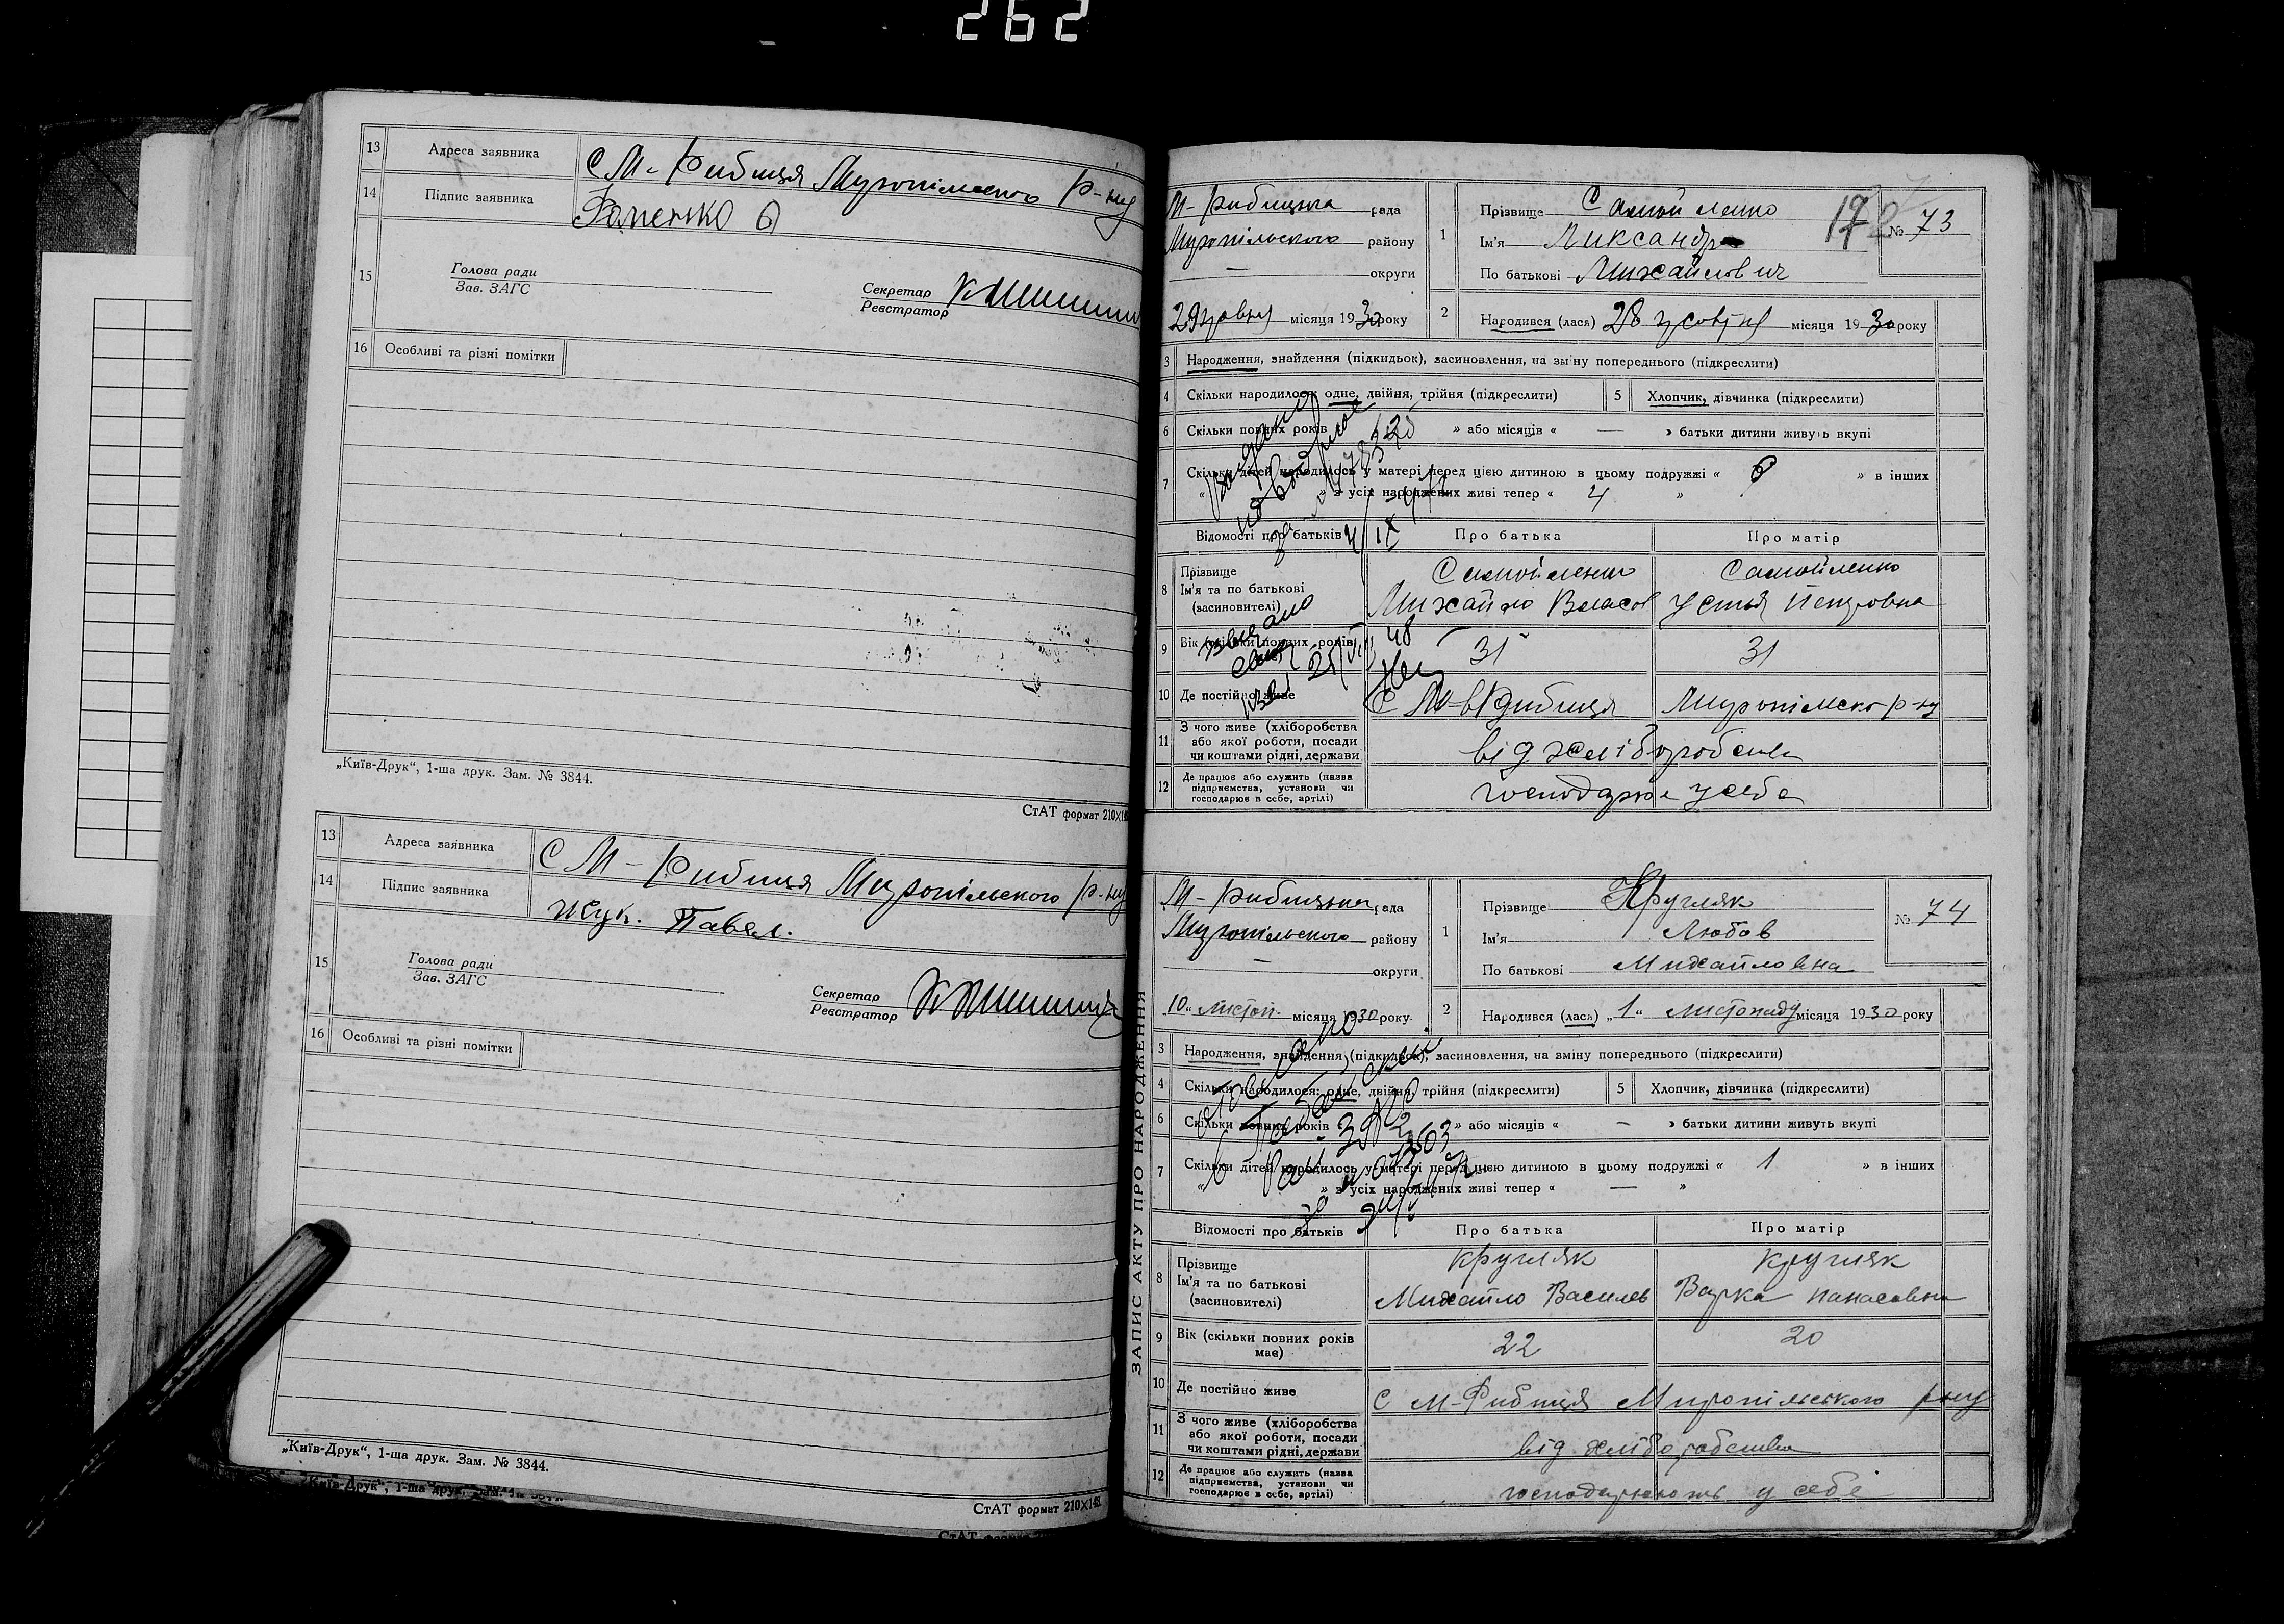 262
13 Адреса заявника С М-Рибиця Муропільського р-ну
14 Підпис заявника Фоменко
15 Голова ради
Зав. ЗАГС
Секретар
Реєстратор
16 Особливі та різні помітки
„Київ-Друк“, 1-ша друк. Зам. № 3844.
СтАТ формат 210×148
13 Адреса заявника С М-Рибиця Миропільського р-ну
14 Підпис заявника Жук. Павел.
15 Голова ради
Зав. ЗАГС
Секретар
Реєстратор
16 Особливі та різні помітки
„Київ-Друк“, 1-ша друк. Зам. № 3844.
СтАТ формат 210×148.
М-Рибицька рада
Муропільського району
— округи
29 жовтня місяця 1930 року
1 Прізвище Самойленко
Ім'я Ликсандр
По батькові Михайлович
№ 73
2 Народився (лася) 28 жовтня місяця 1930 року
3 Народження, знайдення (підкидьок), засиновлення, на зміну попереднього (підкреслити)
4 Скільки народилося: одне, двійня, трійня (підкреслити) 5 Хлопчик, дівчинка (підкреслити)
6 Скільки повних років » або місяців « — » батьки дитини живуть вкупі
7 Скільки дітей народилось у матері перед цією дитиною в цьому подружжі « » в інших
« » з усіх народжених живі тепер « 4 »
Відомості про батьків Про батька Про матір
8 Прізвище
Ім'я та по батькові
(засиновителі)
Самойленко Самойленко
Михайло Власов Устья Петровна
9 Вік (скільки повних років має) 31 31
10 Де постійно живе С М-Рибиця Миропільско р-ну
11 З чого живе (хліборобства
або якої роботи, посади
чи коштами рідні, держави
від хліборобства
12 Де працює або служить (назва
підприємства, установи чи
господарює в себе, артілі)
господарює у себе
ЗАПИС АКТУ ПРО НАРОДЖЕННЯ
М-Рибицька рада
Муропільського району
— округи
„10“ Листоп. місяця 1930 року.
1 Прізвище Кругляк
Ім'я Любов
По батькові Михайловна
№ 74
2 Народився (лася) „1“ Листопаду місяця 1930 року
3 Народження, знайдення, (підкидьок), засиновлення, на зміну попереднього (підкреслити)
4 Скільки народилося: одне, двійня, трійня (підкреслити) 5 Хлопчик, дівчинка (підкреслити)
6 Скільки повних років 2 » або місяців « — » батьки дитини живуть вкупі
7 Скільки дітей народилось у матері перед цією дитиною в цьому подружжі « 1 » в інших
« » з усіх народжених живі тепер « — »
Відомості про батьків Про батька Про матір
8 Прізвище
Ім'я та по батькові
(засиновителі)
Кругляк Кругляк
Михайло Василев Варка Панасовна
9 Вік (скільки повних років
має)
22 20
10 Де постійно живе С М-Рибиця Миропільського р-ну
11 З чого живе (хліборобства
або якої роботи, посади
чи коштами рідні, держави
від хліборобства
12 Де працює або служить (назва
підприємства, установи чи
господарює в себе, артілі)
господарюють у себе